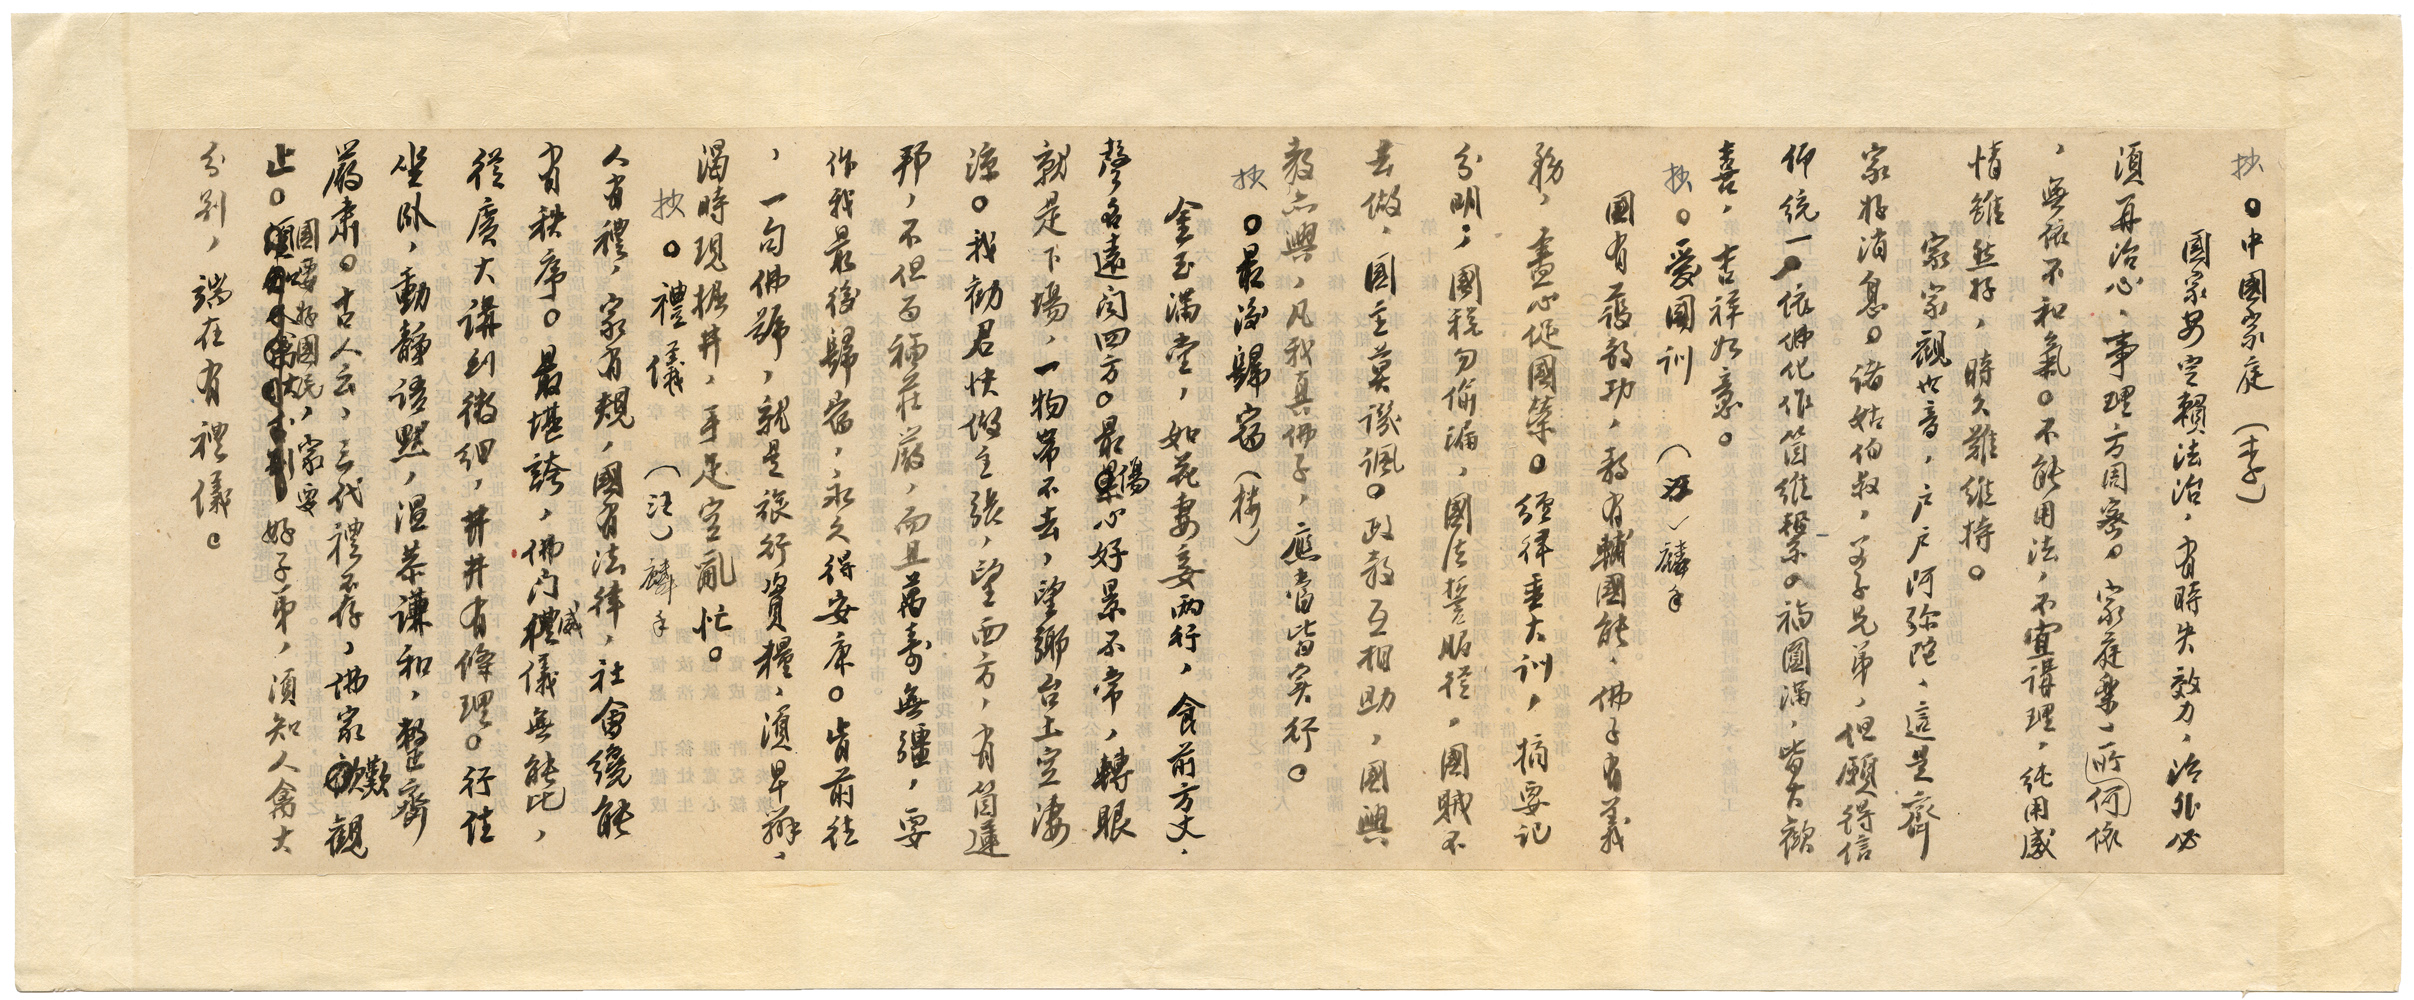 抄 ○中國家庭 (李)
國家安定賴法治，有時失效力，治外必
須再治心，事理方周密。家庭樂、所何依
，無依不和氣。不能用法，不宜講理，純用感
情雖然好，時久難維持。
家家觀世音，戶戶阿彌陀，這是齊
家好消息。諸姑伯叔，父子兄弟，但願得信
仰統一，依佛化作箇維繫。福圓滿，皆大歡
喜，吉祥如意。
抄 ○愛國訓 () 麟手
國有護教功，教有輔國能，佛子有義
務，盡心促國榮。經律垂大訓，摘要記
分明，國稅勿偷漏，國法誓服從，國賊不
去做，國主莫譏諷。政教互相助，國興
教亦興，凡我真佛子，應當皆实行。
抄 ○最後歸宿 (樓)
金玉滿堂，如花妻妾兩行，食前方丈，
聲名遠聞四方。最傷心好景不常，轉眼
就是下場，一物帶不去，望鄉台上空淒
涼。我勸君快做主張，望西方，有箇蓮
邦，不但百福莊嚴，而且萬壽無疆，要
作我最後歸宿，永久得安康。肯前往
，一句佛號，就是旅行資糧，須早辦，
渴時現掘井，手足空亂忙。
抄 ○禮儀 (江) 麟手
人有禮，家有規，國有法律，社會纔能
有秩序。最堪誇，佛门禮威儀無能比，
從廣大講到微細，井井有條理。行住
坐臥，動靜語默，溫恭謙和，整齊
嚴肅。古人云，三代禮不存，佛家歎觀
止。國要好國民，家要好子弟，須知人禽大
分別，端在有禮儀。